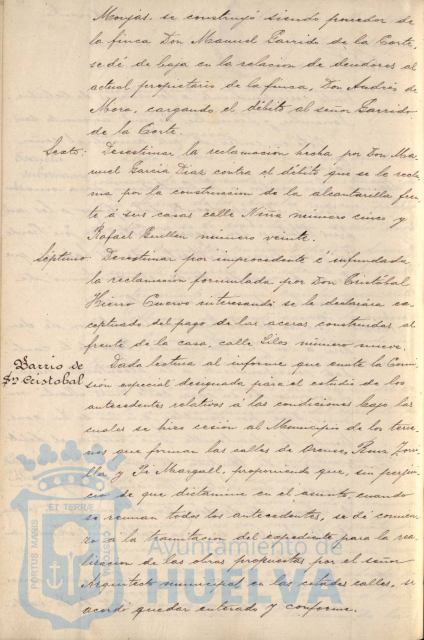 Monjas, se construyó siendo poseedor de
la finca Don Manuel Garrido de la Corte,
se dé de baja en la relacion de deudores al
actual propietario de la finca, Don Andrés de
Mora, cargando el débito al señor Garrido
de la Corte.
Sesto: Desestimar la reclamación hecha por Don Ma-
nuel Garcia Diaz contra el débito que se le recla-
ma por la construcción de la alcantarilla fren-
te á sus casas calle Niña número cinco y
Rafael Guillen número veinte.
Séptimo: Desestimar por improcedente é infundada
la reclamacion formulada por Don Cristóbal
Hierro Cuervo interesando se le declarára ex-
ceptuado del pago de las aceras construidas al
frente de la casa, calle Silos número nueve.
Barrio de
Sn Cristobal
Dada lectura al informe que emite la Comi-
sión especial designada para el estudio de los
antecedentes relativos á las condiciones bajo las
cuales se hizo cesión al Municipio de los terre-
nos que forman las calles de Orense, Ruiz Zorri-
lla y Pi Margall, proponiendo que, sin perjui-
cio de que dictamine en el asunto cuando
se reunan todos los antecedentes, se dé comien-
zo á la tramitación del expediente para la rea-
lización de las obras propuestas por el señor
Arquitecto municipal en las citadas calles, se
acordó quedar enterado y conforme.
PORTUS MARIS ET TERRÆ CUSTODIA
Ayuntamiento de
HUELVA